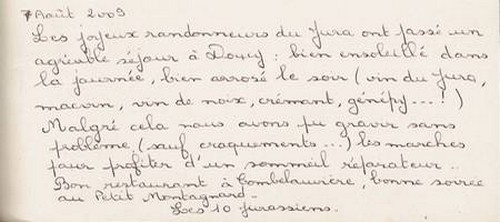 7 Août 2009
Les joyeux randonneurs du Jura ont passé un
agréable séjour à Doucy : bien ensoleillé dans
la journée, bien arrosé le soir (vin du Jura,
macvin, vin de noix, crémant, génépy...!)
Malgré cela nous avons pu gravir sans
problème (sauf craquements...) les marches
pour profiter d'un sommeil réparateur..
Bon restaurant à Combelouvière, bonne soirée
au Petit Montagnard.
Les 10 jurassiens.